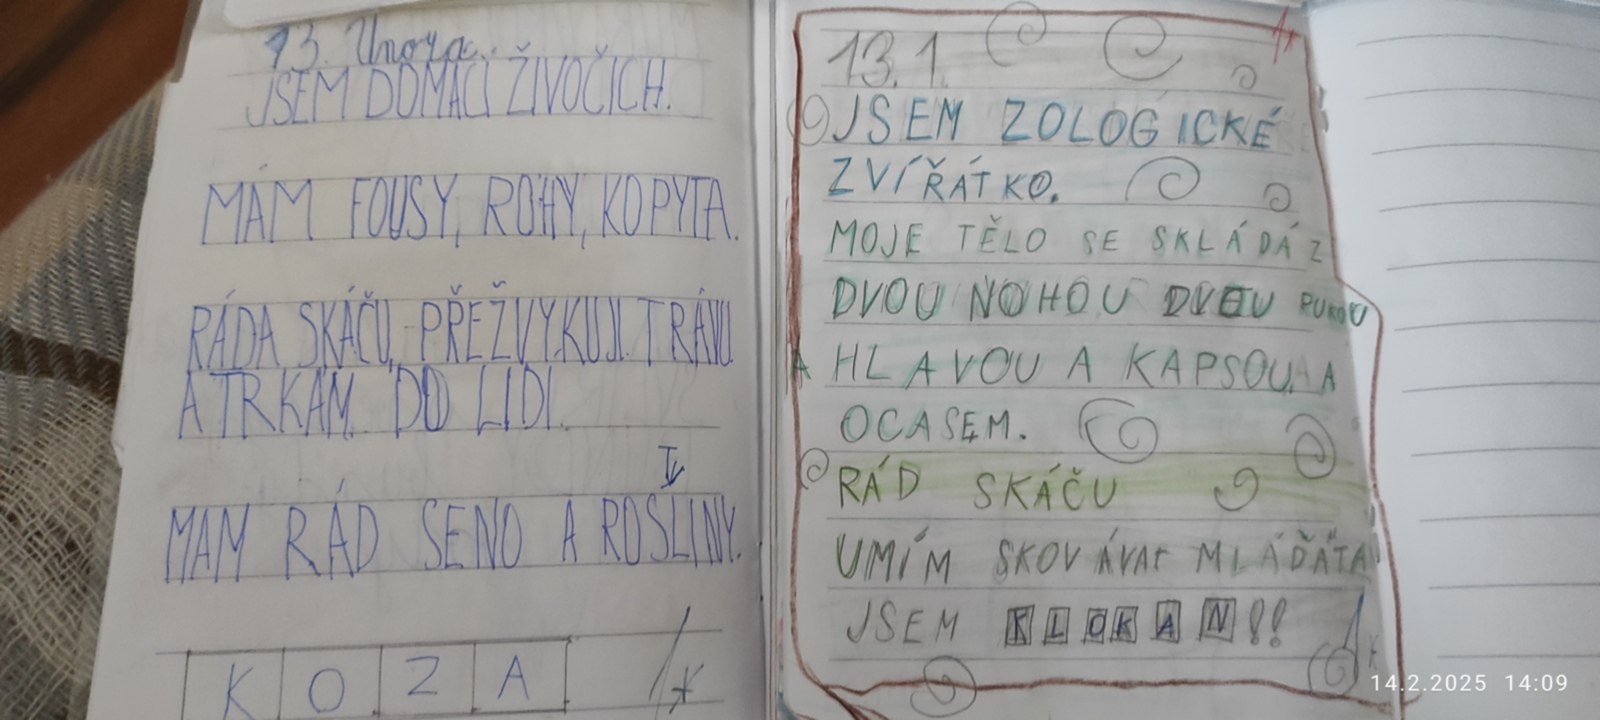 13. Února.
JSEM DOMÁCÍ ŽIVOČICH.
MÁM FOUSY, ROHY, KOPYTA.
RÁDA SKÁČU, PŘEŽVYKUJI TRÁVU
A TRKAM DO LIDI.
MAM RÁD SENO A ROSLINY.
KOZA
13. 1.
JSEM ZOLOGICKÉ
ZVÍŘÁTKO.
MOJE TĚLO SE SKLÁDÁ Z
DVOU NOHOU DVOU RUKOU
A HLAVOU A KAPSOU A
OCASEM.
RÁD SKÁČU
UMÍM SKOVÁVAT MLÁĎÁTA
JSEM KLOKAN!!
14.2.2025 14:09